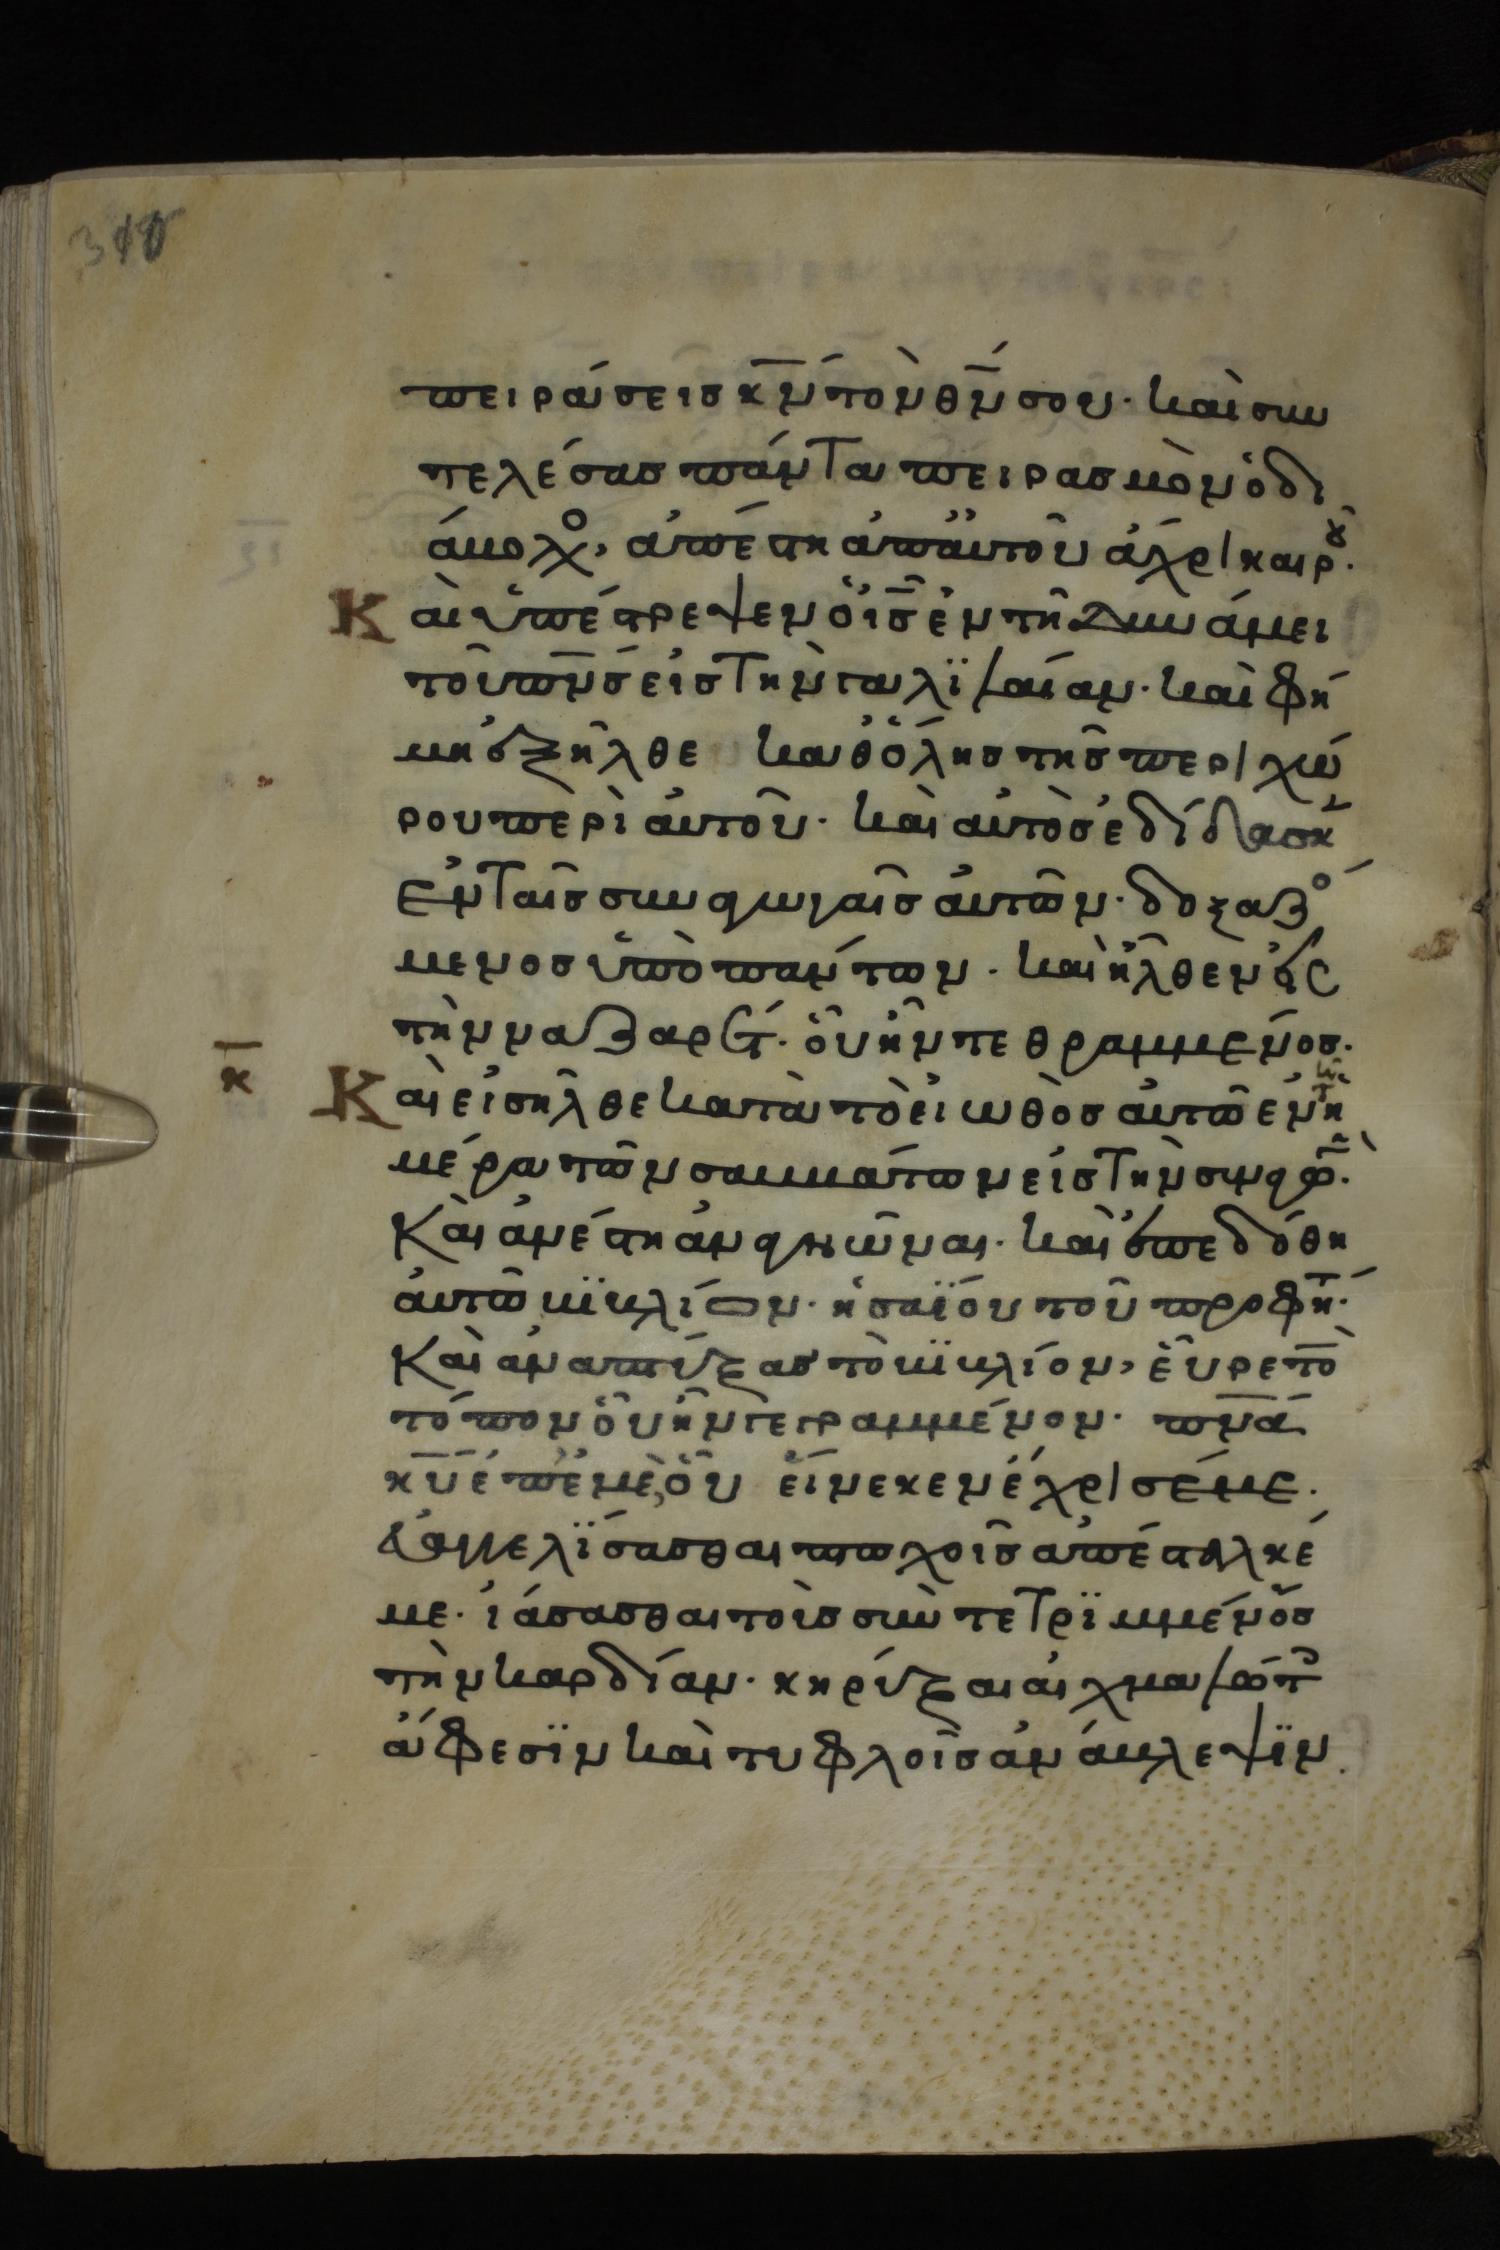 310
πειράσεις κ̅ν̅ τὸν θ̅ν̅ σου· καὶ συν
τελέσας πάντα πειρασμὸν ὁ δι
άβολο, ἀπέστη ἀπ᾽ αὐτοῦ ἄχρι καιροῦ.
Καὶ ὑπέστρεψεν ὁ ι̅ς̅ ἐν τῆ δυνάμει
τοῦ π̅ν̅ς̅ εἰς τὴν γαλϊλαίαν· καὶ φή
μη ἐξῆλθε καθ᾽ ὅλης τῆς περιχώ
ρου περὶ αὐτοῦ· καὶ αὐτὸς ἐδίδασκ
ἐν ταῖς συναγωγαῖς αὐτῶν· δοξαζο
μενος ὑπὸ πάντων· καὶ ἦλθεν εἰς
τὴν ναζαρέτ· οὗ ἦν τεθραμμένος.
κ̅
Καὶ εἰσῆλθε κατὰ τὸ εἰωθὸς αὐτῶ ἐν τῆ ἡ
μέρα τῶν σαββάτων εἰς τὴν συναγωγ.
Καὶ ἀνέστη ἀναγνῶναι· καὶ ἐπεδόθη
αὐτῶ βϊβλίον· ἡσαϊου τοῦ προφή·
Καὶ ἀναπτύξας τὸ βϊβλίον, εὗρε τὸ
τόπον οὗ ἦν γεγραμμένον· π̅ν̅α̅
κ̅υ̅ ἐπ᾽ ἐμὲ, οὗ εἵνεκεν ἔχρισέ με.
εὐαγγελϊσασθαι πτωχοῖς ἀπέσταλκέ
με· ἰάσασθαι τοὺς συντετρϊμμένους
τὴν καρδίαν· κηρύξαι αἰχμαλώτ
ἄφεσϊν καὶ τυφλοῖς ἀνάβλεψϊν.